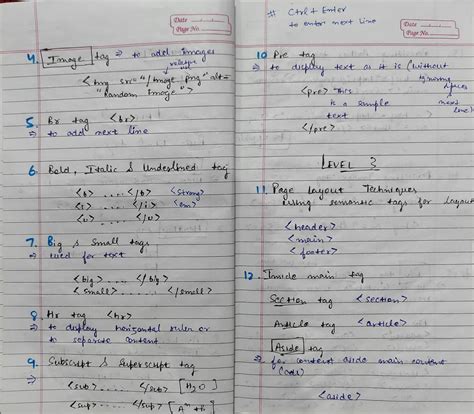 Date
Page No.
4. Image tag ⇒ to add images
relative url
<img src="/Image.png" alt=
"Random Image">
5. Br tag <br>
⇒ to add next line
6. Bold, Italic & Underlined tag
<b> .... </b> <strong>
<i> .... </i> <em>
<u> .... </u>
7. Big & Small tags
⇒ used for text
<big> .... </big>
<small> .... </small>
8. Hr tag <hr>
⇒ to display horizontal ruler or
to separate content
9. Subscript & Superscript tag
<sub> .... </sub> H₂O
<sup> .... </sup>
# Ctrl + Enter
to enter next line
Date
Page No.
10. Pre tag
⇒ to display text as it is (without
ignoring
spaces &
next line)
<pre> This
is a sample
text
</pre>
LEVEL 3
11. Page Layout Techniques
using semantic tags for layout
<header>
<main>
<footer>
12. Inside main tag
Section tag <section>
Article tag <article>
Aside tag
⇒ for content aside main content
(ads)
<aside>